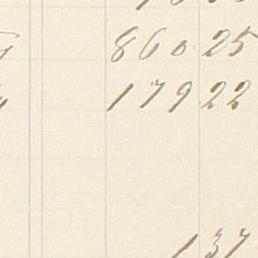 860.25
179 22
137